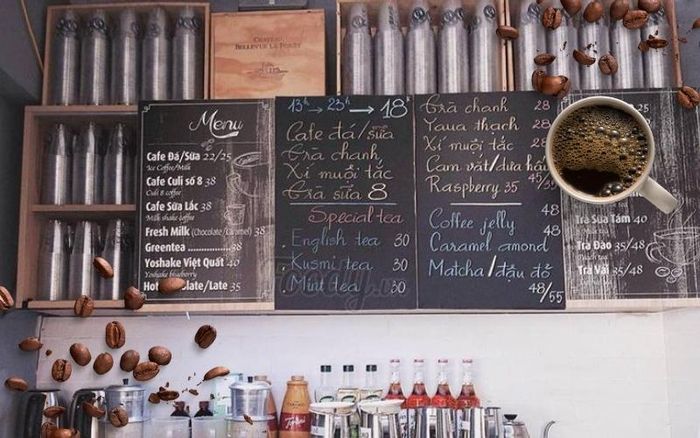 CHATEAU
BELLEVUE LA FORÊT
Menu
Cafe Đá/Sữa 22/25
Ice Coffee/Milk
Cafe Culi số 8 38
Culi 8 coffee
Cafe Sữa Lắc 38
Milk shake coffee
Fresh Milk (Chocolate/Caramel) 38
Greentea 38
Yoshake Việt Quất 40
Yoshake blueberry
Hot Chocolate/Late 35
13h → 23h → 18k
Cafe đá/sữa
Trà chanh
Xí muội tắc
Trà sữa 8
Special tea
English tea 30
Kusmi tea 30
Mint tea 30
Trà chanh 28
Yaua thạch 28
Xí muội tắc
Cam vắt/dừa
Raspberry 35 45
48
Coffee jelly 48
Caramel amond
Matcha/đậu đỏ 48
45/55
Trà Sữa Tắm 40
Trà Đào 35/48
Trà Vải 35/48